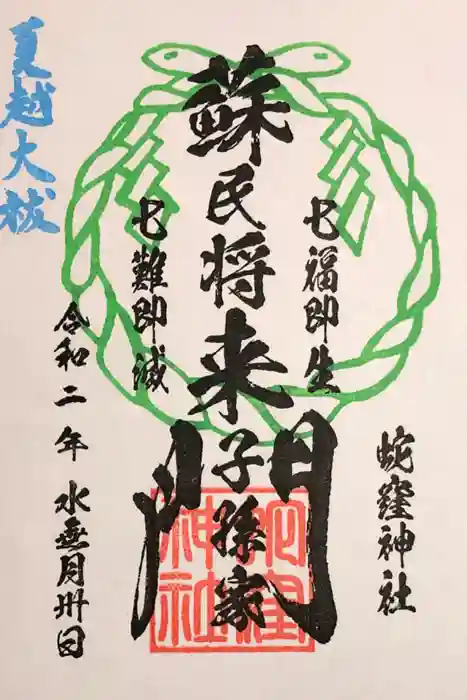 蛇窪神社
七福即生
蘇民将来子孫家門
七難即滅
夏越大祓
令和二年 水無月卅日
蛇窪神社